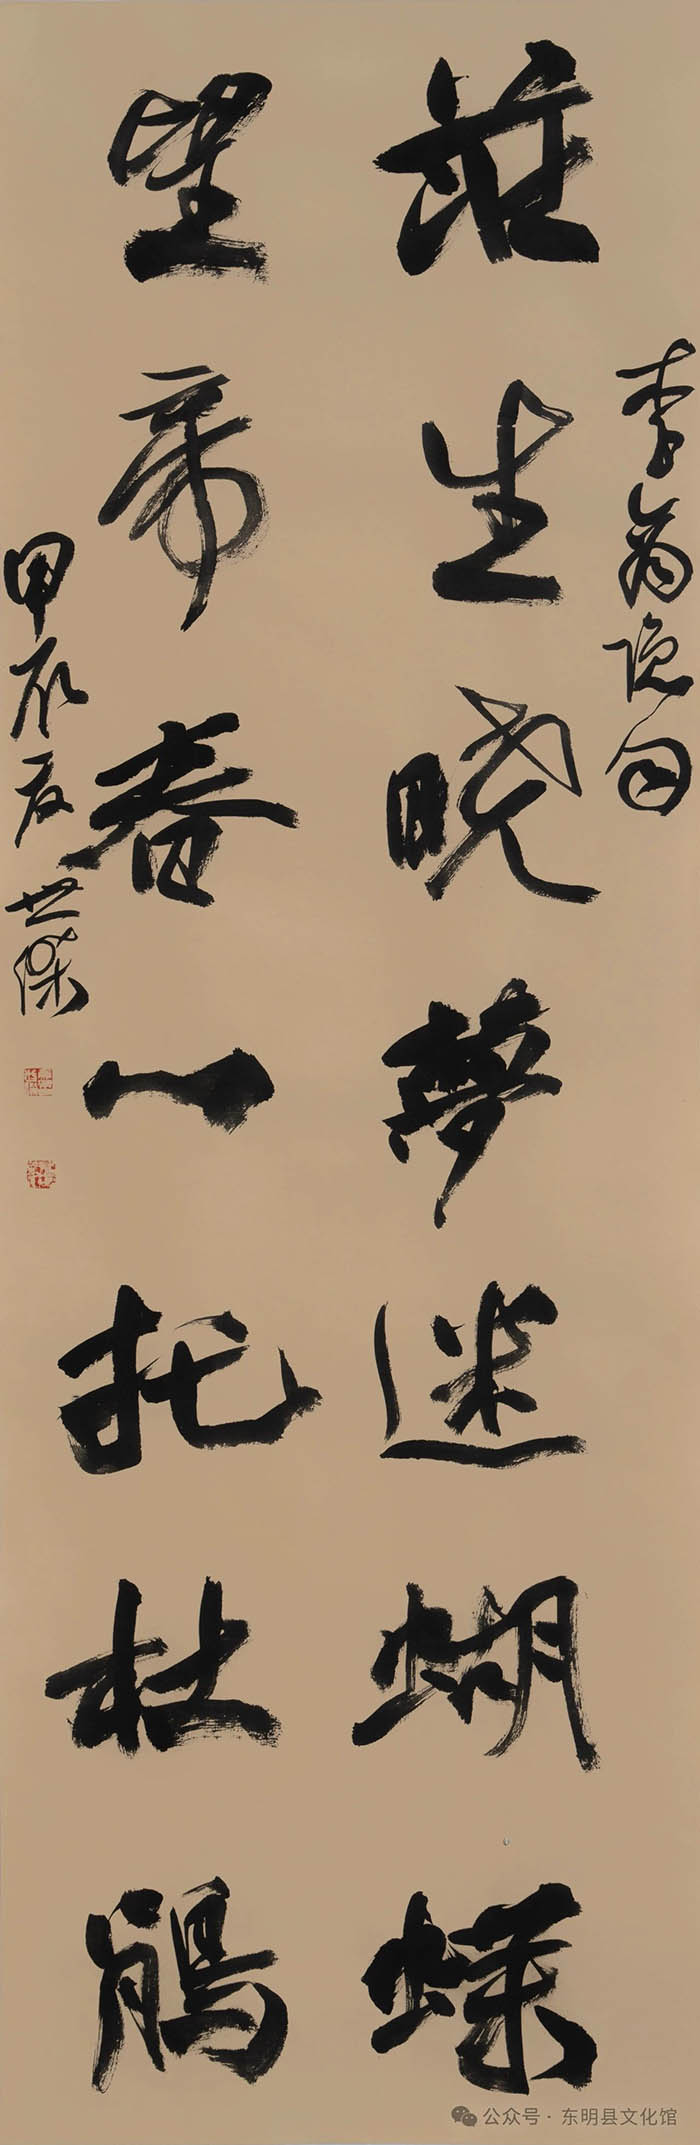 李商隐句
莊生晓夢迷蝴蝶
望帝春心托杜鵑
甲辰夏世傑
公众号·东明县文化馆